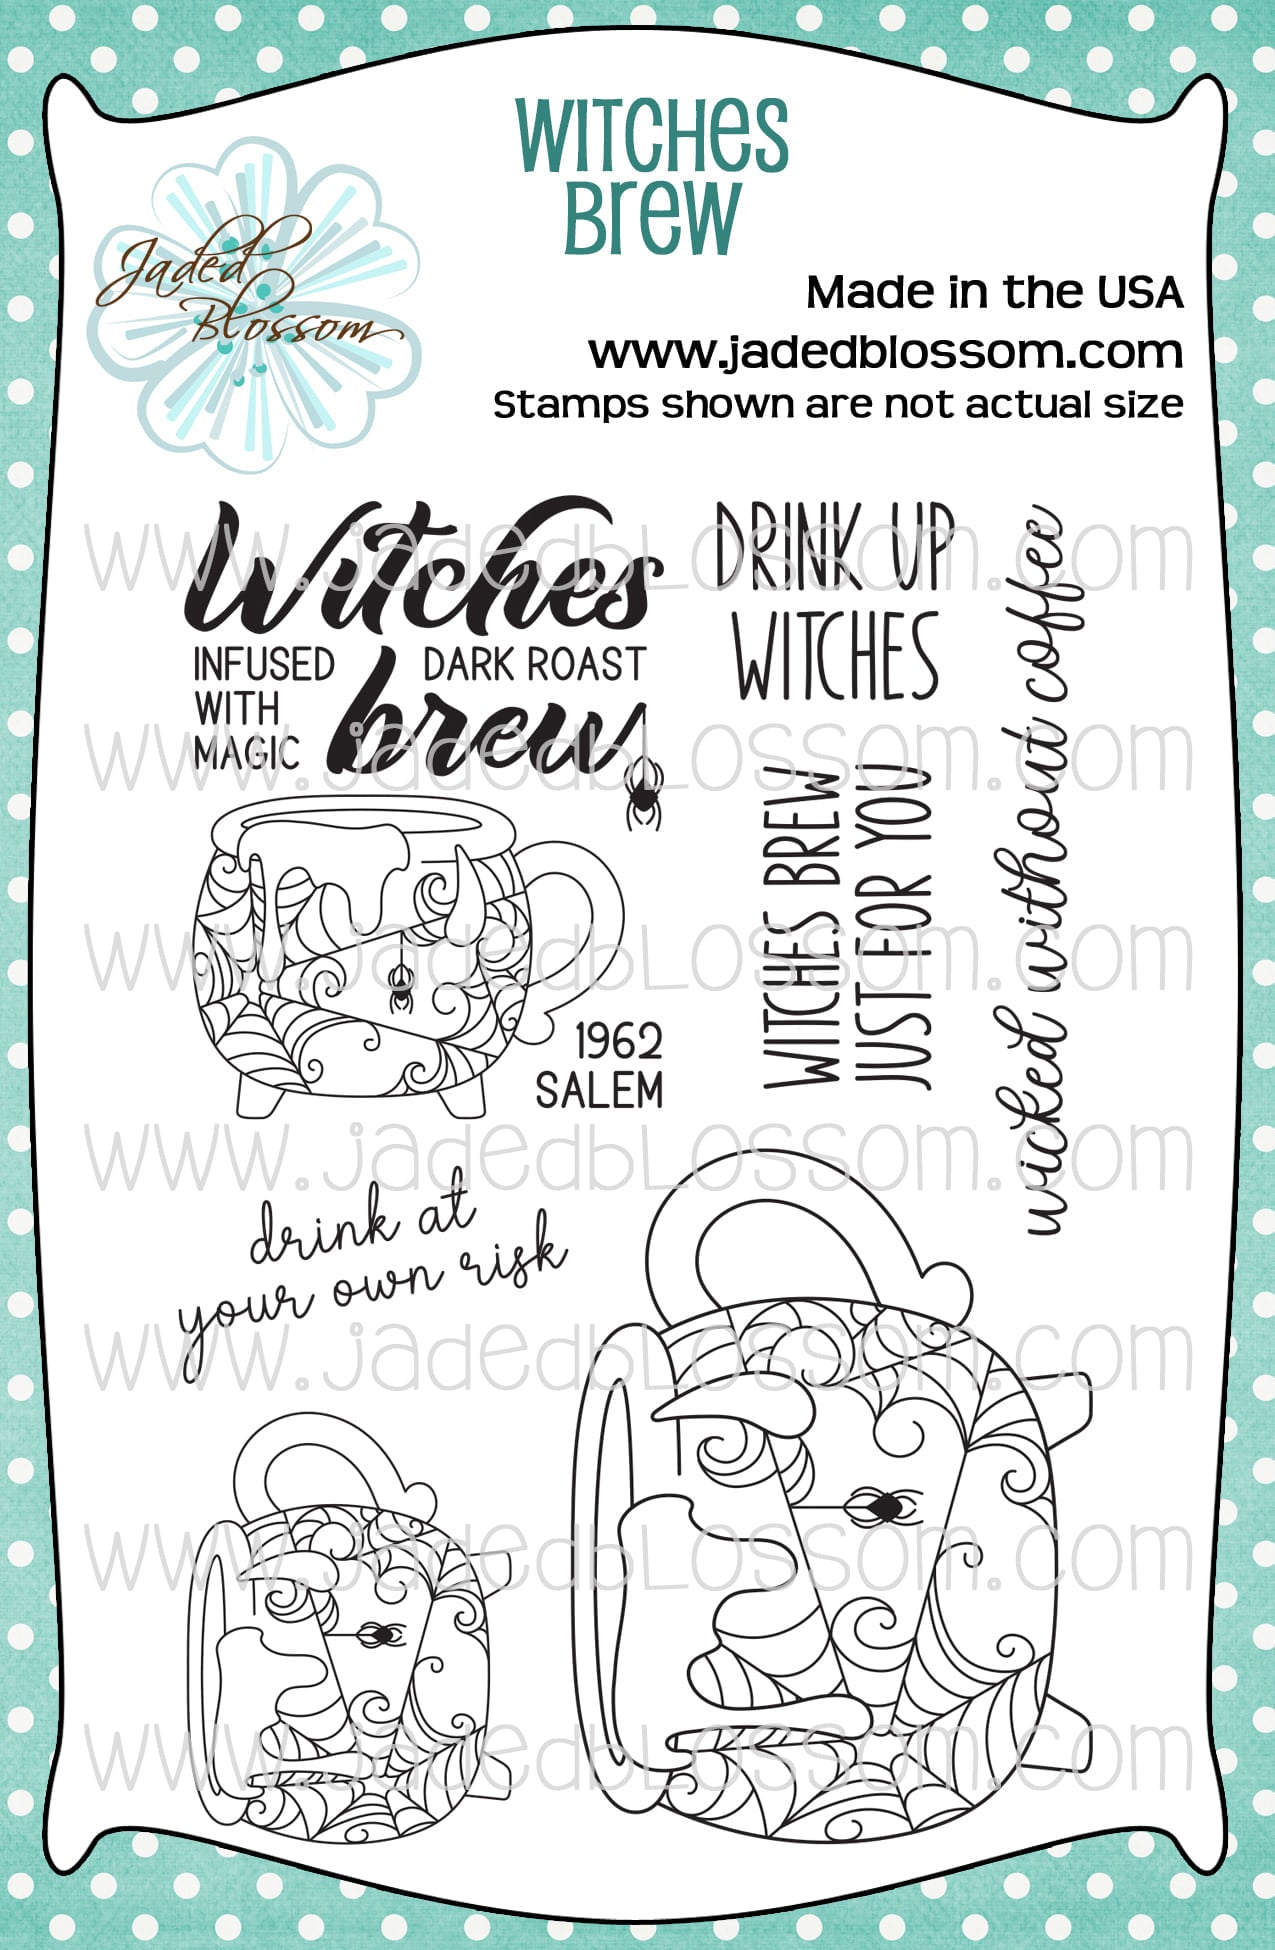 Witches
Brew
Jaded
Blossom
Made in the USA
www.jadedblossom.com
Stamps shown are not actual size
Witches
INFUSED
WITH
MAGIC
DARK ROAST
brew
DRINK UP
WITCHES
wicked without coffee
WITCHES BREW
JUST FOR YOU
1962
SALEM
drink at
your own risk
www.jadedblossom.com
www.jadedblossom.com
www.jadedblossom.com
www.jadedblossom.com
www.jadedblossom.com
www.jadedblossom.com
www.jadedblossom.com